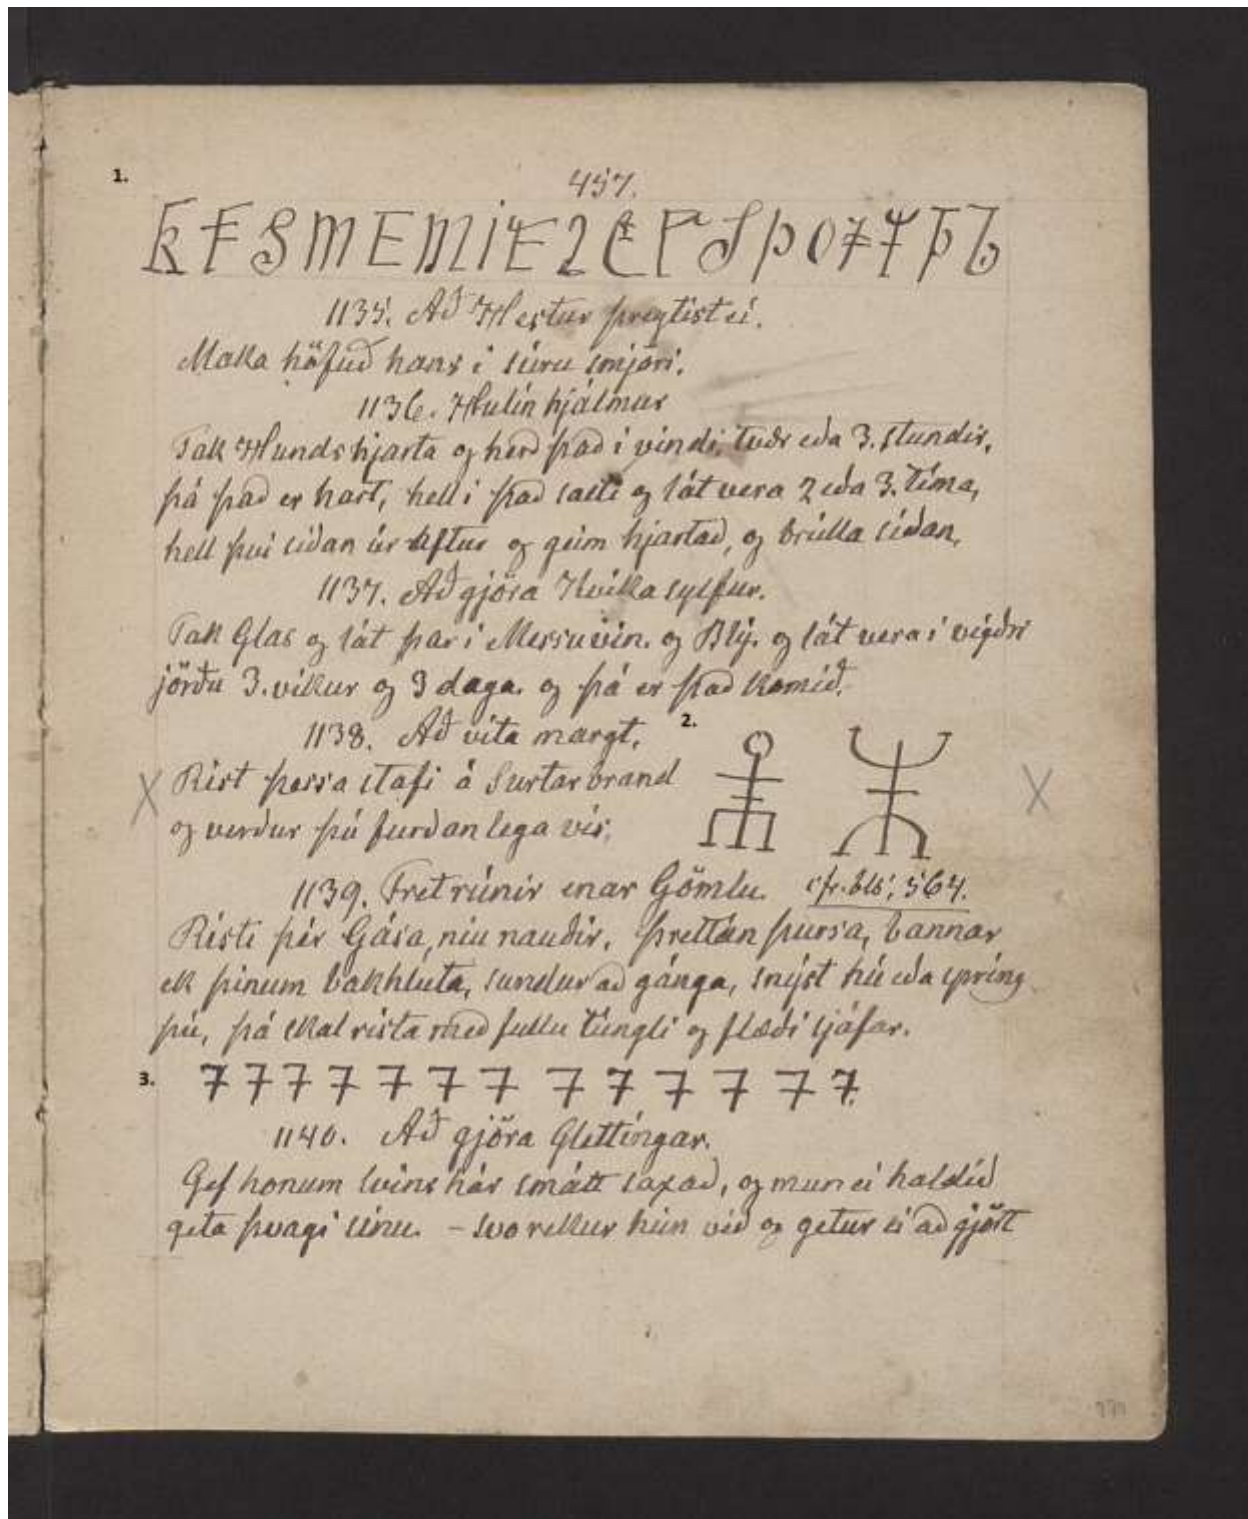 1.
457.
1135. Að Hestur þreytist ei.
Maka höfuð hans i súru smjöri.
1136. Hulin hjálmur
Tak Hunds hjarta og herð það i vindi, tvær eða 3. stundir,
þá það er hart, hell i það salti og lát vera 2 eða 3. tíma,
hell því siðan úr aftur og geim hjartað, og brúka síðan,
1137. Að gjöra Kvikasylfur.
Tak Glas og lát þar i Messuvin. og Blý. og lát vera i vigðri
jörðu 3. vikur og 3 daga. og þá er það komið.
1138. Að vita margt. 2.
Rist þessa stafi á Surtarbrand
og verður þú furðanlega vis,
1139. Fretrúnir enar Gömlu. cfr. bls. 564.
Risti þér Gása, niu nauðir, þrettán þursa, bannar
ek þinum bakhluta, sundur að gánga, snýst hú eða spring
þú, þá skal rista með fullu túngli og flæði sjáfar.
3.
1140. Að gjöra Glettingar.
Gef honum svins hár smátt saxað, og mun ei haldið
geta þvagi sinu. - svo rekur hún við og getur ei að gjört